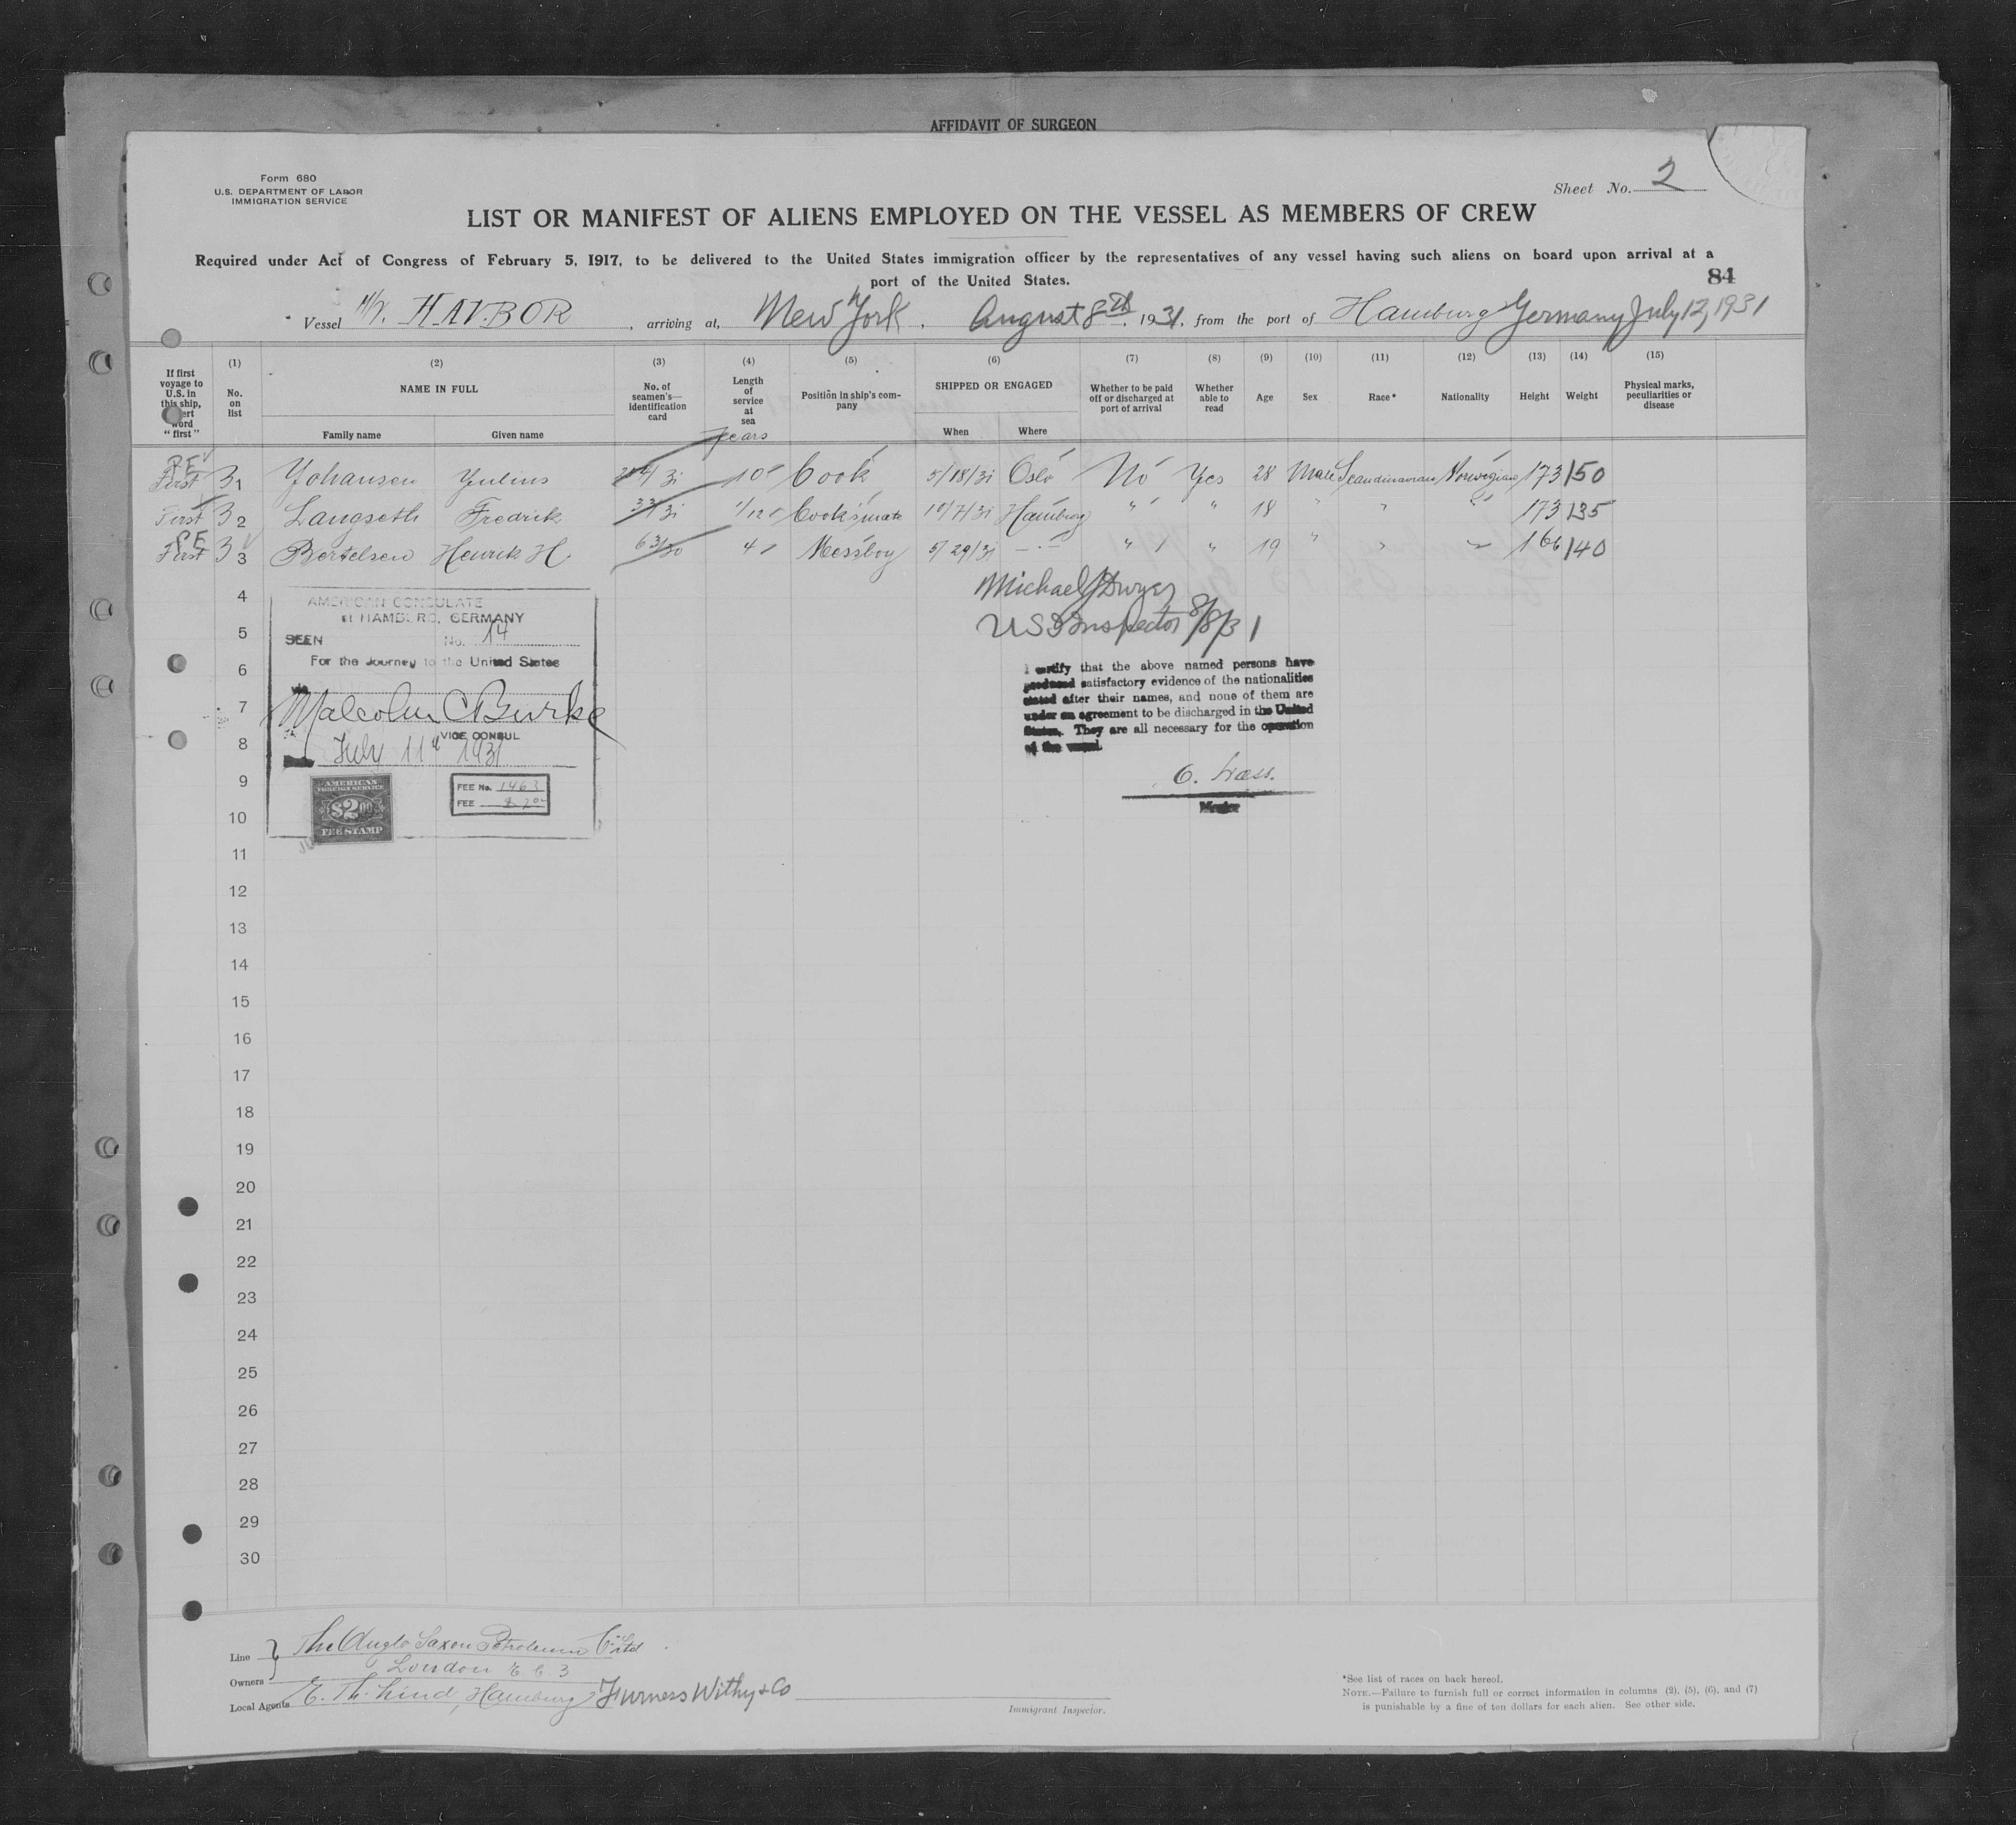 AFFIDAVIT OF SURGEON
Form 680
U.S. DEPARTMENT OF LABOR
IMMIGRATION SERVICE
Sheet No. 2
LIST OR MANIFEST OF ALIENS EMPLOYED ON THE VESSEL AS MEMBERS OF CREW
Required under Act of Congress of February 5, 1917, to be delivered to the United States immigration officer by the representatives of any vessel having such aliens on board upon arrival at a
port of the United States.
84
Vessel HAVBOR, arriving at, New York, August 8th, 1931, from the port of Hamburg Germany July 12, 1931
If first voyage to U.S. in this ship, word "first"
(1) No. on list
(2) NAME IN FULL
Family name Given name
(3) No. of seamen's identification card
(4) Length of service at sea
years
(5) Position in ship's company
(6) SHIPPED OR ENGAGED
When Where
(7) Whether to be paid off or discharged at port of arrival
(8) Whether able to read
(9) Age
(10) Sex
(11) Race*
(12) Nationality
(13) Height
(14) Weight
(15) Physical marks, peculiarities or disease
First 31 Yohansen Yulius 10 Cook 5/18/31 Oslo No Yes 28 Male Scandinavian Norwegian 173 150
First 32 Langseth Fredrik 1/12 Cook's mate 10/7/31 Hamburg " " 18 " " " 173 135
First 33 Bertelsen Henrik H. 4 Messboy 5/29/31 " " 19 " " " 166 140
Michael J Dwyer
US Inspector 8/8/31
4
5
6
7
8
9
10
AMERICAN CONSULATE
at HAMBURG, GERMANY
SEEN No. 14
For the Journey to the United States
via
Malcolm C Burke
VICE CONSUL
July 11th 1931
AMERICAN
FOREIGN SERVICE
$2.00
FEE STAMP
FEE No. 1463
FEE
I certify that the above named persons have
produced satisfactory evidence of the nationalities
stated after their names, and none of them are
under an agreement to be discharged in the United
States. They are all necessary for the operation
of the vessel.
Master
11
12
13
14
15
16
17
18
19
20
21
22
23
24
25
26
27
28
29
30
Line The Anglo Saxon Petroleum Co Ltd
Owners London E C 3
Local Agents E. Th. Lind, Hamburg Furness Withy & Co
Immigrant Inspector.
*See list of races on back hereof.
NOTE.—Failure to furnish full or correct information in columns (2), (5), (6), and (7)
is punishable by a fine of ten dollars for each alien. See other side.